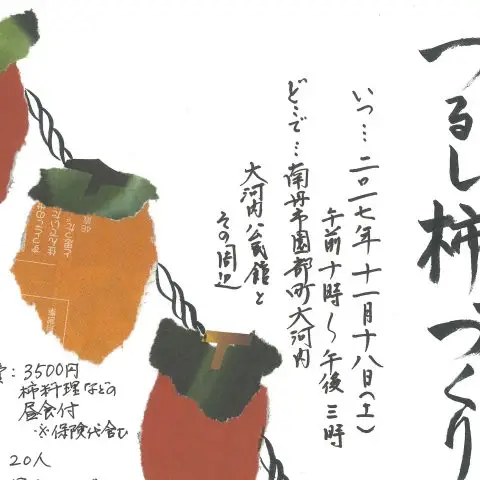 つるし柿づくり
いつ…二〇一七年十一月十八日(土)
午前十時〜午後三時
どこで…南丹市園部町大河内
大河内公民館と
その周辺
:3500円
柿料理などの
昼食付
※保険代含む
20人